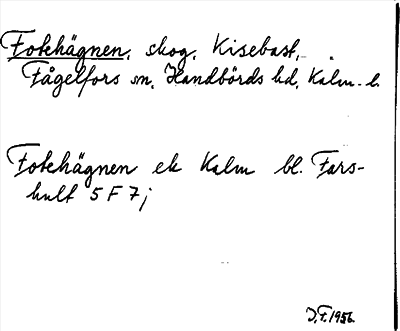 Fotehägnen, skog, Kisebast,
Fågelfors sn, Handbörds hd, Kalm. l.
Fotehägnen ek Kalm bl. Fars-
hult 5 F 7 j
J.F. 1956